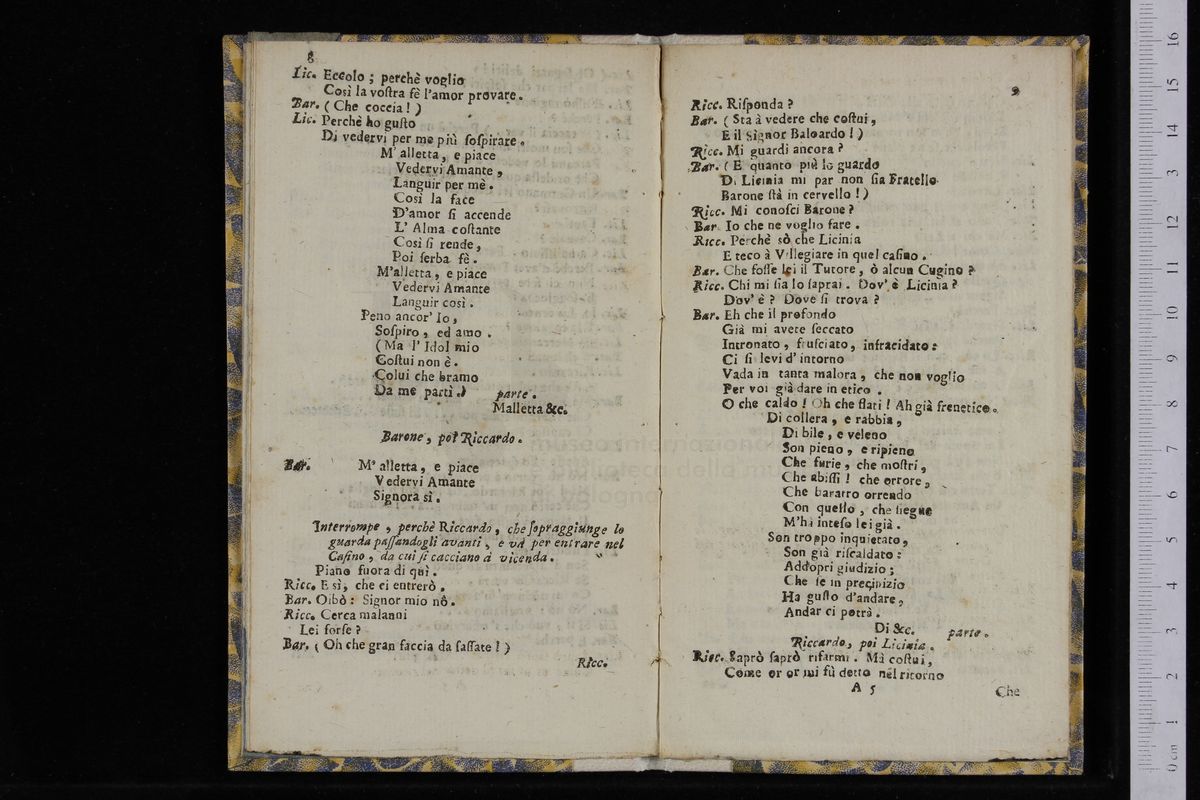 8
Lic. Eccolo ; perchè voglio
Così la voſtra fè l'amor provare.
Bar. ( Che coccia ! )
Lic. Perchè ho guſto
Di vedervi per me più ſoſpirare.
M' alletta, e piace
Vedervi Amante,
Languir per mè.
Così la face
D'amor ſi accende
L' Alma coſtante
Così ſi rende,
Poi ſerba fè.
M'alletta, e piace
Vedervi Amante
Languir così.
Peno ancor' Io,
Soſpiro, ed amo.
(Ma l' Idol mio
Coſtui non è.
Colui che bramo
Da me partì.) parte.
Malletta &c.
Barone, poi Riccardo.
Bar. M' alletta, e piace
Vedervi Amante
Signora sì.
Interrompe, perchè Riccardo, che ſopraggiunge lo
guarda paſſandogli avanti, e và per entrare nel
Caſino, da cui ſi cacciano à vicenda.
Piano fuora di quì.
Ricc. E sì, che ci entrerò.
Bar. Oibò : Signor mio nò.
Ricc. Cerca malanni
Lei forſe ?
Bar. ( Oh che gran faccia da ſaſſate ! )
Ricc.
9
Ricc. Riſponda ?
Bar. ( Sta à vedere che coſtui,
E il Signor Baloardo ! )
Ricc. Mi guardi ancora ?
Bar. ( E quanto più lo guardo
Di Licinia mi par non ſia Fratello
Barone ſtà in cervello ! )
Ricc. Mi conoſci Barone ?
Bar. Io che ne voglio fare.
Ricc. Perchè sò che Licinia
E teco à Villegiare in quel caſino.
Bar. Che foſſe lei il Tutore, ò alcun Cugino ?
Ricc. Chi mi ſia lo ſaprai. Dov' è Licinia ?
Dov' è ? Dove ſi trova ?
Bar. Eh che il profondo
Già mi avete ſeccato
Intronato, fruſciato, infracidato :
Ci ſi levi d' intorno
Vada in tanta malora, che non voglio
Per voi già dare in etico.
O che caldo ! Oh che flati ! Ah già frenetico.
Di collera, e rabbia,
Di bile, e veleno
Son pieno, e ripieno
Che furie, che moſtri,
Che abiſſi ! che orrore,
Che bararro orrendo
Con queſto, che ſiegue
M'hà inteſo lei già.
Son troppo inquietato,
Son già riſcaldato :
Addopri giudizio ;
Che ſe in precipizio
Ha guſto d'andare,
Andar ci potrà.
Di &c. parte.
Riccardo, poi Licinia.
Ricc. Saprò ſaprò rifarmi. Mà coſtui,
Come or or mi fù detto nel ritorno
A 5 Che
museo internazionale
biblioteca della mu
di bologna
0 cm 1 2 3 4 5 6 7 8 9 10 11 12 13 14 15 16